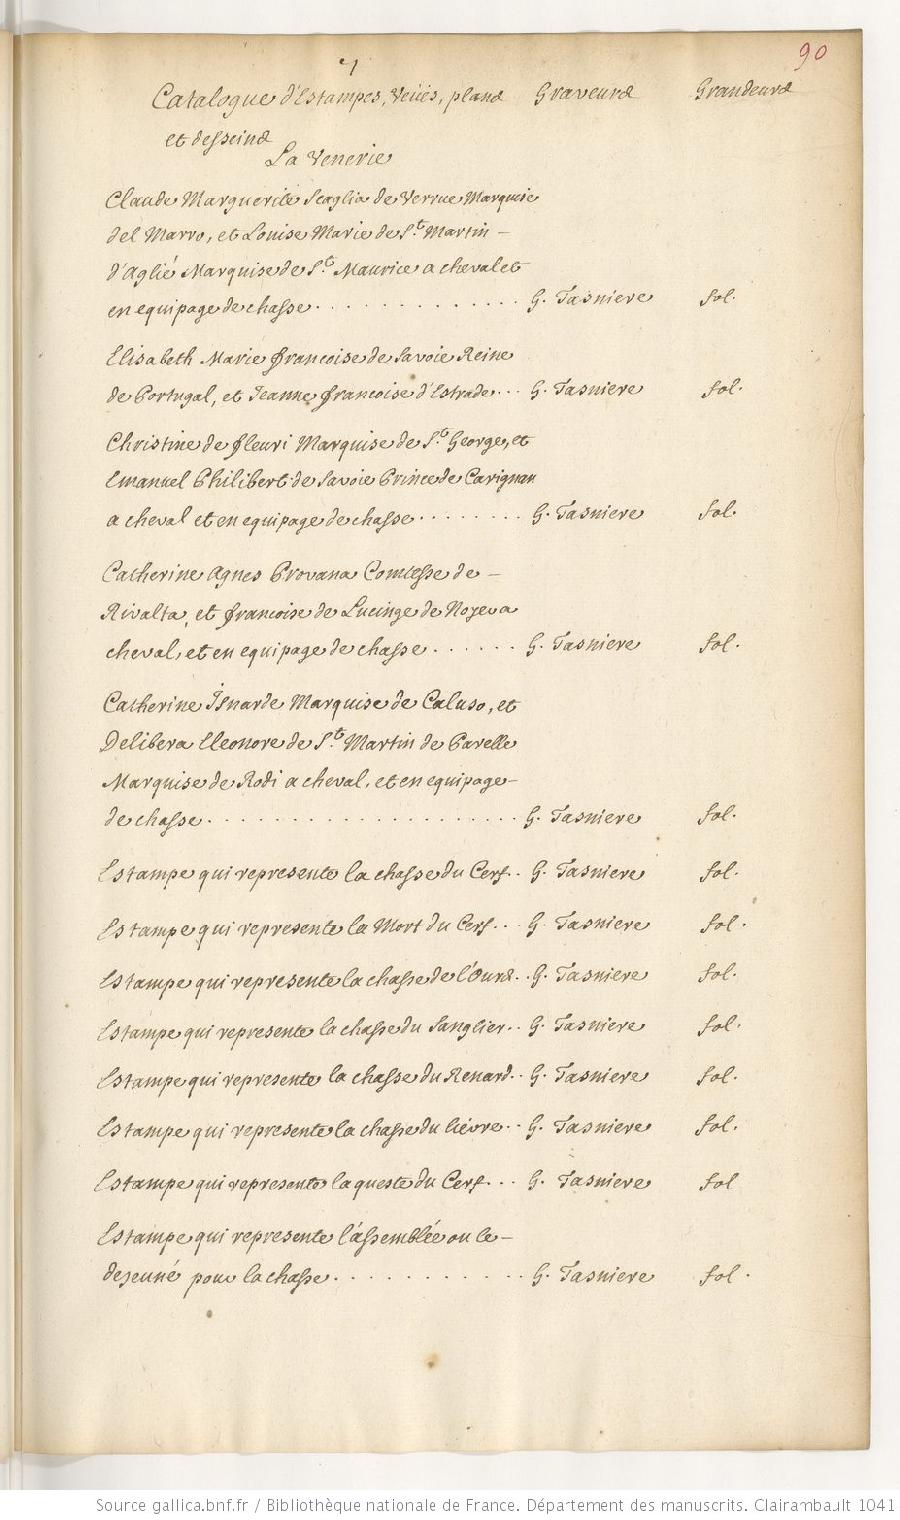 90
Catalogue d'Estampes, veües, plans Graveurs Grandeurs
et desseins
La Venerie
Claude Marguerite Scaglia de Verrue Marquise
del Marro, et Louise Marie de St. Martin –
d'Aglié Marquise de St. Maurice a cheval et
en equipage de chasse . . . . . . . . . . . . . G. Tasniere fol.
Elisabeth Marie françoise de Savoie Reine
de Portugal, et Jeanne françoise d'Estrade . . . G. Tasniere fol.
Christine de fleuri Marquise de St. George, et
Emanuel Philibert de Savoie Prince de Carignan
a cheval et en equipage de chasse . . . . . . . . G. Tasniere fol.
Catherine Agnes Provana Comtesse de –
Rivalta, et françoise de Lucinge de Noyer a
cheval, et en equipage de chasse . . . . . . G. Tasniere fol.
Catherine Isnarde Marquise de Caluso, et
Delibera Eleonore de St. Martin de Parelle
Marquise de Rodi a cheval, et en equipage –
de chasse . . . . . . . . . . . . . . . . . . . . G. Tasniere fol.
Estampe qui represente la chasse du Cerf . . G. Tasniere fol.
Estampe qui represente la Mort du Cerf . . G. Tasniere fol.
Estampe qui represente la chasse de l'Ours . . G. Tasniere fol.
Estampe qui represente la chasse du Sanglier . . G. Tasniere fol.
Estampe qui represente la chasse du Renard . . G. Tasniere fol.
Estampe qui represente la chasse du liévre . . G. Tasniere fol.
Estampe qui represente la queste du Cerf . . . G. Tasniere fol
Estampe qui represente l'assemblée ou le –
dejeuné pour la chasse . . . . . . . . . . . . G. Tasniere fol.
Source gallica.bnf.fr / Bibliothèque nationale de France. Département des manuscrits. Clairambault 1041